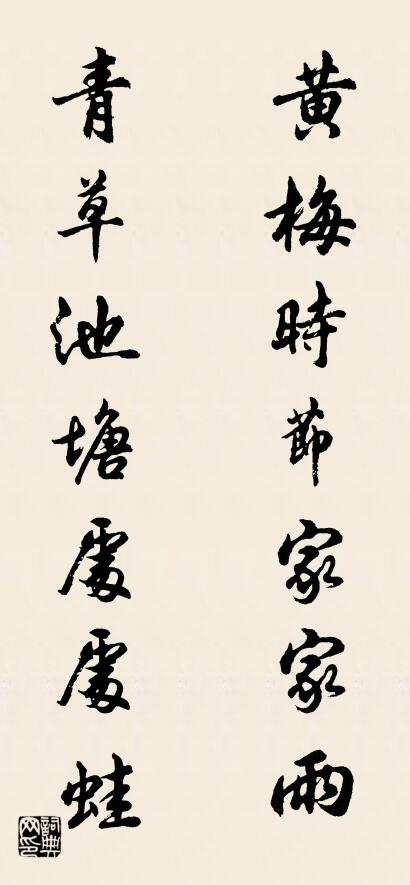 黄梅時節家家雨
青草池塘處處蛙